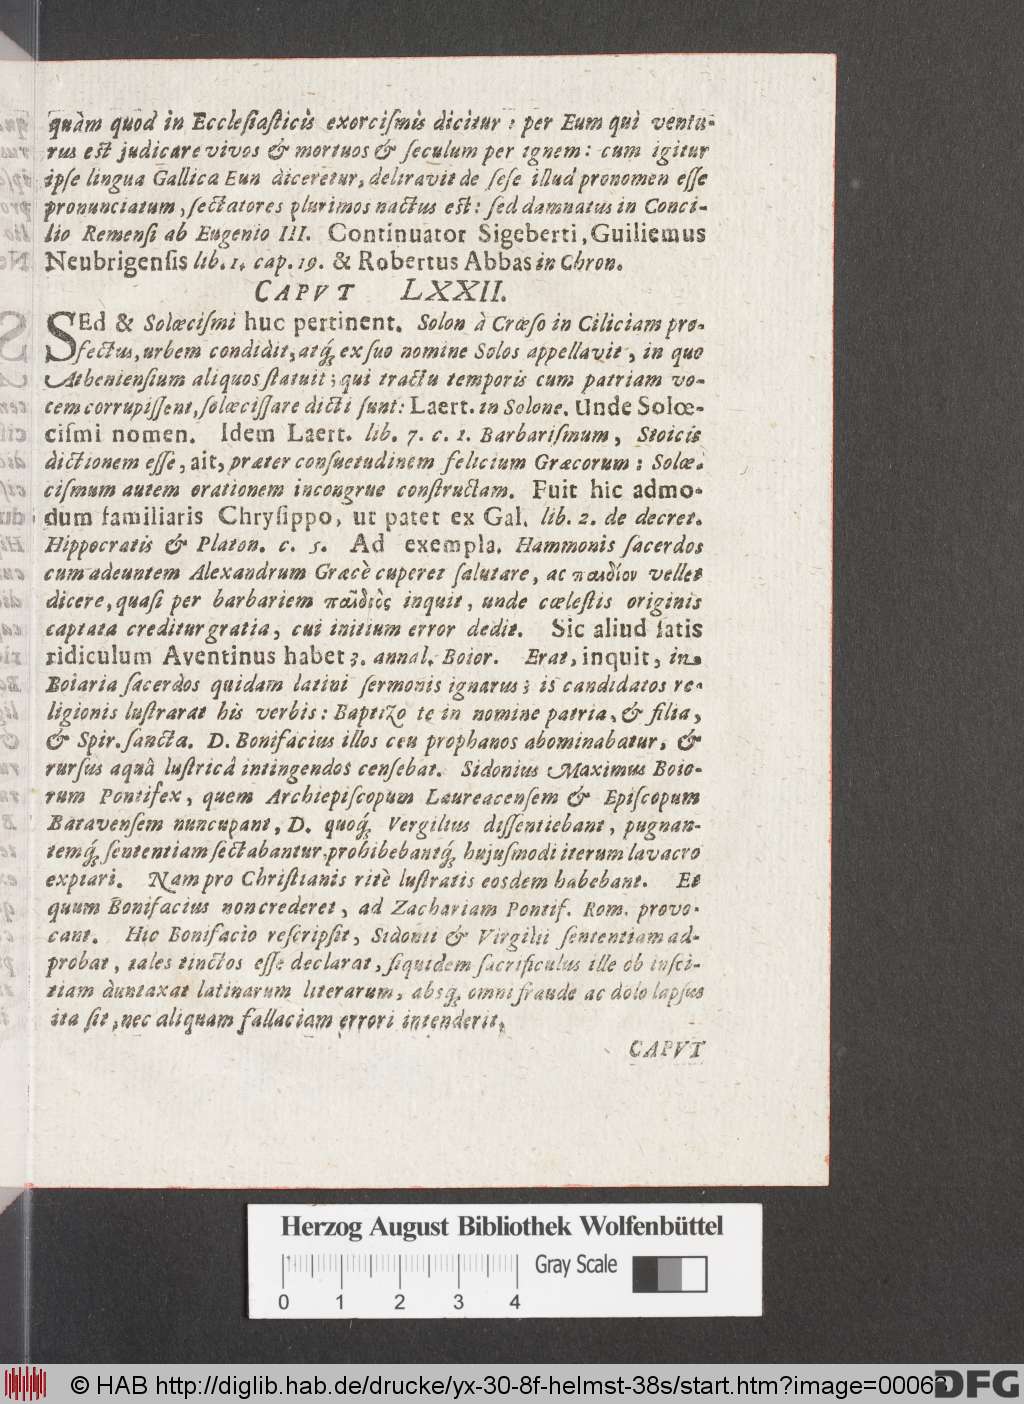 quàm quod in Ecclesiasticis exorcismis dicitur: per Eum qui ventu-
rus est judicare vivos & mortuos & seculum per ignem: cum igitur
ipse lingua Gallica Eun diceretur, deliravit de sese illud pronomen esse
pronunciatum, sectatores plurimos nactus est: sed damnatus in Conci-
lio Remensi ab Eugenio III. Continuator Sigeberti, Guilielmus
Neubrigensis lib. 1. cap. 19. & Robertus Abbas in Chron.
CAPVT LXXII.
SEd & Solœcismi huc pertinent. Solon à Crœso in Ciliciam pro-
fectus, urbem condidit, atq́; ex suo nomine Solos appellavit, in quo
Atheniensium aliquos statuit; qui tractu temporis cum patriam vo-
cem corrupissent, solœcissare dicti sunt: Laert. in Solone. Unde Solœ-
cismi nomen. Idem Laert. lib. 7. c. 1. Barbarismum, Stoicis
dictionem esse, ait, præter consuetudinem felicium Græcorum: Solœ-
cismum autem orationem incongrue constructam. Fuit hic admo-
dum familiaris Chrysippo, ut patet ex Gal. lib. 2. de decret.
Hippocratis & Platon. c. 5. Ad exempla. Hammonis sacerdos
cum adeuntem Alexandrum Græcè cuperet salutare, ac παιδίον vellet
dicere, quasi per barbariem παῖδιὸς inquit, unde cœlestis originis
captata creditur gratia, cui initium error dedit. Sic aliud satis
ridiculum Aventinus habet 3. annal. Boior. Erat, inquit, in
Boiaria sacerdos quidam latini sermonis ignarus; is candidatos re-
ligionis lustrarat his verbis: Baptizo te in nomine patria, & filia,
& Spir. sancta. D. Bonifacius illos ceu prophanos abominabatur, &
rursus aquâ lustricâ intingendos censebat. Sidonius Maximus Boio-
rum Pontifex, quem Archiepiscopum Laureacensem & Episcopum
Batavensem nuncupant, D. quoq́; Vergilius dissentiebant, pugnan-
temq́; sententiam sectabantur, prohibebantq́; hujusmodi iterum lavacro
expiari. Nam pro Christianis ritè lustratis eosdem habebant. Et
quum Bonifacius non crederet, ad Zachariam Pontif. Rom. provo-
cant. Hic Bonifacio rescripsit, Sidonii & Virgilii sententiam ad-
probat, tales tinctos esse declarat, siquidem sacrificulus ille ob insci-
tiam duntaxat latinarum literarum, absq́; omni fraude ac dolo lapsus
ita sit, nec aliquam fallaciam errori intenderit.
CAPVT
Herzog August Bibliothek Wolfenbüttel
Gray Scale
0 1 2 3 4
© HAB http://diglib.hab.de/drucke/yx-30-8f-helmst-38s/start.htm?image=00063
DFG